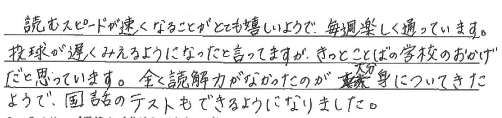 読むスピードが速くなることがとても嬉しいようで、毎週楽しく通っています。
投球が遅くみえるようになったと言ってますが、きっとことばの学校のおかげ
だと思っています。全く読解力がなかったのが大分身についてきた
ようで、国語のテストもできるようになりました。